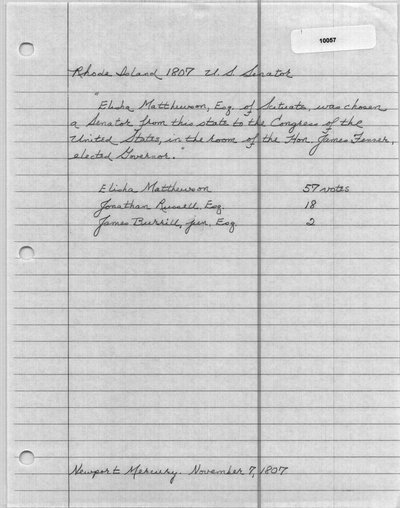 10057
Rhode Island 1807 U.S. Senator
"Elisha Matthewson, Esq. of Scituate, was chosen
a Senator from this state to the Congress of the
United States, in the room of the Hon. James Fenner,
elected Governor."
Elisha Matthewson 57 votes
Jonathan Russell, Esq. 18
James Burrill, jun. Esq 2
Newport Mercury. November 7, 1807